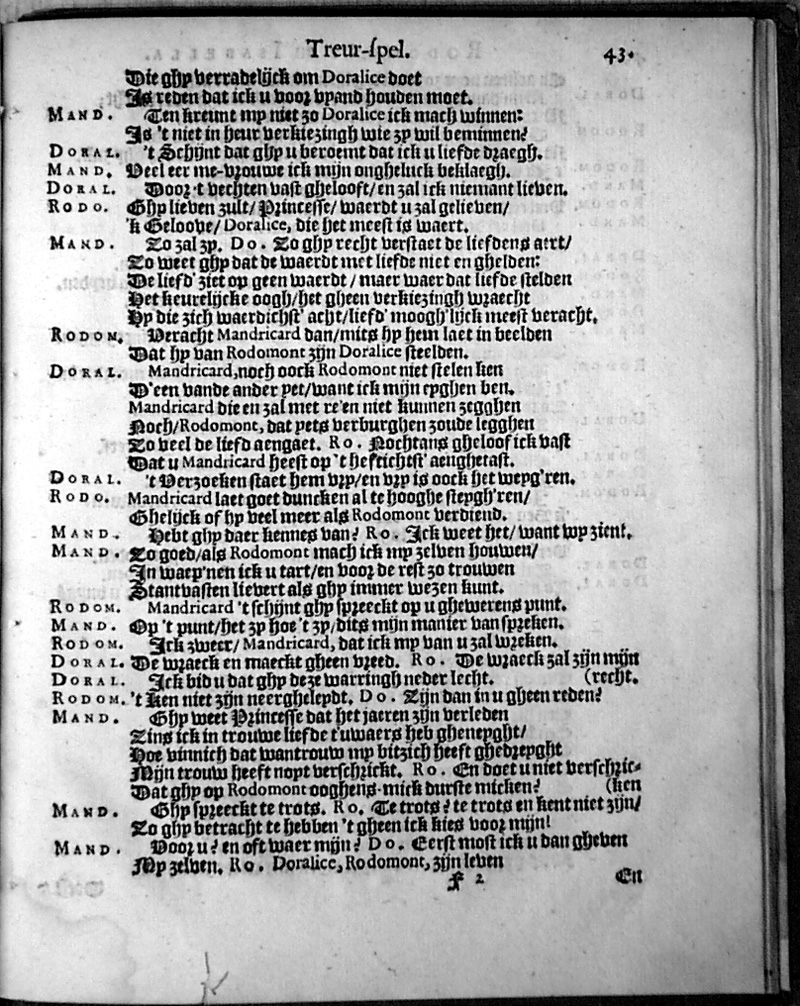 Treur-ſpel. 43.
Die ghy verradelijck om Doralice doet
Is reden dat ick u voor vyand houden moet.
MAND. Ten kreunt my niet zo Doralice ick mach winnen:
Is 't niet in heur verkiezingh wie zy wil beminnen?
DORAL. 't Schijnt dat ghy u beroemt dat ick u liefde draegh.
MAND. Veel eer me-vrouwe ick mijn ongheluck beklaegh.
DORAL. Door 't vechten vast ghelooft/ en zal ick niemant lieven.
RODO. Ghy lieven zult/ Princesse/ waerdt u zal gelieven/
'k Geloove/ Doralice, die het meest is waert.
MAND. Zo zal zy. Do. Zo ghy recht verstaet de liefdens aert/
Zo weet ghy dat de waerdt met liefde niet en ghelden:
De liefd' ziet op geen waerdt / maer waer dat liefde stelden
Het keurelijcke oogh/ het gheen verkiezingh wraecht
Hy die zich waerdichst' acht/ liefd' moogh'lijck meest veracht.
RODOM. Veracht Mandricard dan/ mits hy hem laet in beelden
Dat hy van Rodomont zijn Doralice steelden.
DORAL. Mandricard, noch oock Rodomont niet stelen ken
D'een vande ander yet/ want ick mijn eyghen ben.
Mandricard die en zal met re'en niet kunnen zegghen
Noch/ Rodomont, dat yets verburghen zoude legghen
Zo veel de liefd aengaet. Ro. Nochtans gheloof ick vast
Dat u Mandricard heest op 't heftichtst' aenghetast.
DORAL. 't Verzoeken staet hem vry/ en vry is oock het weyg'ren.
RODO. Mandricard laet goet duncken al te hooghe steygh'ren/
Ghelijck of hy veel meer als Rodomont verdiend.
MAND. Hebt ghy daer kennes van? Ro. Ick weet het/ want wy zient.
MAND. Zo goed/ als Rodomont mach ick my zelven houwen/
In waep'nen ick u tart/ en voor de rest zo trouwen
Stantvasten lievert als ghy immer wezen kunt.
RODOM. Mandricard 't schijnt ghy spreeckt op u ghewerens punt.
MAND. Op 't punt/ het zy hoe 't zy/ dits mijn manier van spreken.
RODOM. Ick zweer/ Mandricard, dat ick my van u zal wreken.
DORAL. De wraeck en maeckt gheen vreed. Ro. De wraeck zal zijn mijn
DORAL. Ick bid u dat ghy deze warringh neder lecht. (recht.
RODOM. 't Ken niet zijn neerghelepdt. Do. Zijn dan in u gheen reden?
MAND. Ghy weet Princesse dat het jaeren zijn verleden
Zins ick in trouwe liefde t'uwaers heb gheneyght/
Hoe vinnich dat wantrouw my bitzich heeft ghedreyght
Mijn trouw heeft noyt verschrickt. Ro. En doet u niet verschric-
Dat ghy op Rodomont ooghens-mick durste micken? (ken
MAND. Ghy spreeckt te trots. Ro. Te trots? te trots en kent niet zijn/
Zo ghy betracht te hebben 't gheen ick kies voor mijn!
MAND. Voor u? en oft waer mijn? Do. Eerst most ick u dan gheven
My zelven. Ro. Doralice, Rodomont, zijn leven
F 2 En